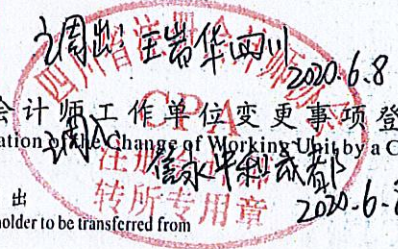 调出:玉岩华四川
2020.6.8
四川省注册会计师协会
会计师工作单位变更事项登
CPA
ation of the Change of Working Unit by a C
调入
信永中和成都
注册
出
转所专用章
2020.6.8
holder to be transferred from